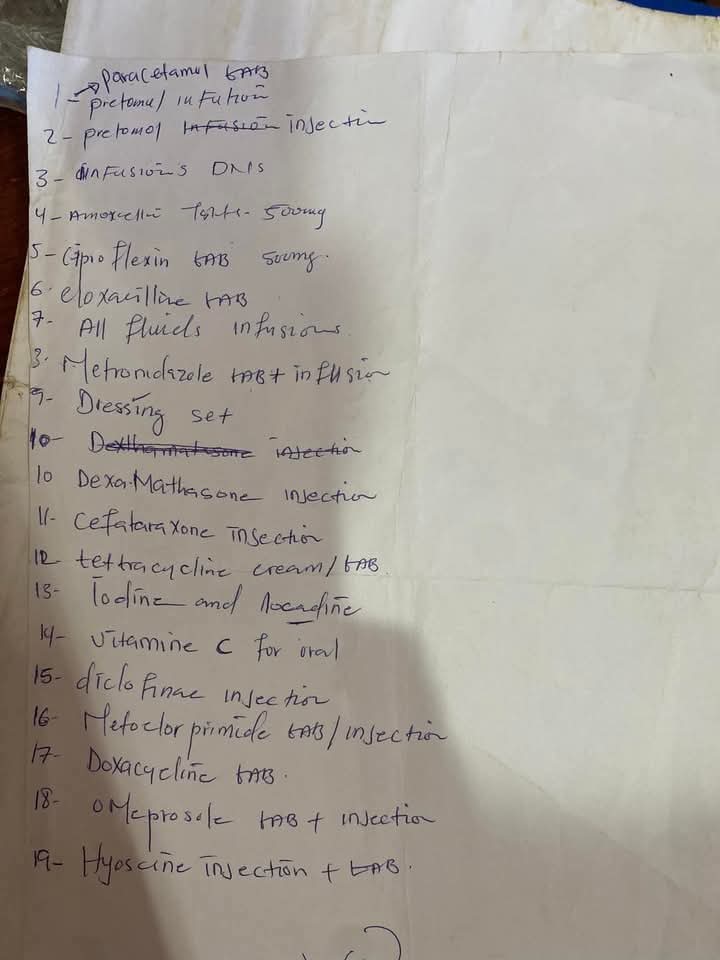 paracetamol tAB
1- pretomol infution
2- pretomol infusion injectin
3- infusions DNS
4- Amoxcellin 500mg
5- Ciproflexin tAB 500mg.
6. cloxacilline tAB
7- All fluids infusions.
8. Metronidazole tAB + infusion
9- Dressing set
10- Dexthamatasone injection
10 Dexa Mathasone injection
11- cefataraxone insection
12 tettracycline cream/tAB
13- Iodine and
14- vitamine C for oral
15- diclofinac injection
16- Metoclorprimide tAB/insection
17- Doxacycline tAB.
18- OMeprosole tAB + injection
19- Hyoscine insection + tAB.